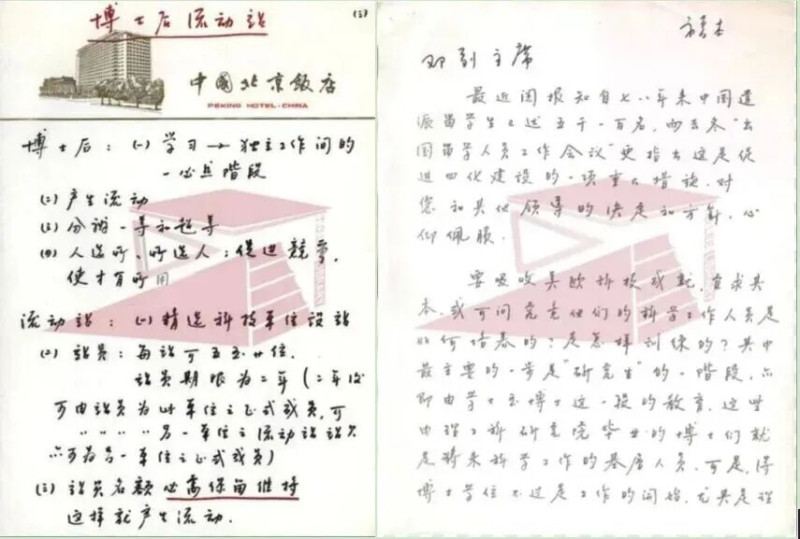 博士后流动站 (3)
中國北京飯店
PEKING HOTEL·CHINA
博士后：(一) 学习→独立工作间的
一必具阶段
(二) 产生流动
(三) 分辨一等和超等
(四) 人选所、所选人；促进競爭，
使才有所用
流动站：(一) 精选科技单位设站
(二) 站员：每站可五至廿位.
站员期限为二年（二年后
可由站员为此单位之正式成员, 可
〃 〃 〃 〃 另一单位之流动站站员
亦可为另一单位之正式成员）
(三) 站员名额必需保留维持
这样就产生流动.
邓副主席
最近阅报知自七八年来中国遣
派留学生已达五千一百名，而去冬“出
国留学人员工作会议”更指出这是促
进四化建设的一项重大措施. 对
您和其他领导的决定和方针，心
仰佩服.
要吸收美欧科技成就，查求其
本，或可问究竟他们的科学工作人员是
如何培养的？是怎样训练的？其中
最主要的一步是“研究生”的一阶段，亦
即由学士至博士这一段的教育. 这些
由理工科研究院毕业的博士们就
是将来科学工作的基层人员. 可是，得
博士学位不过是工作的开始，尤其是理